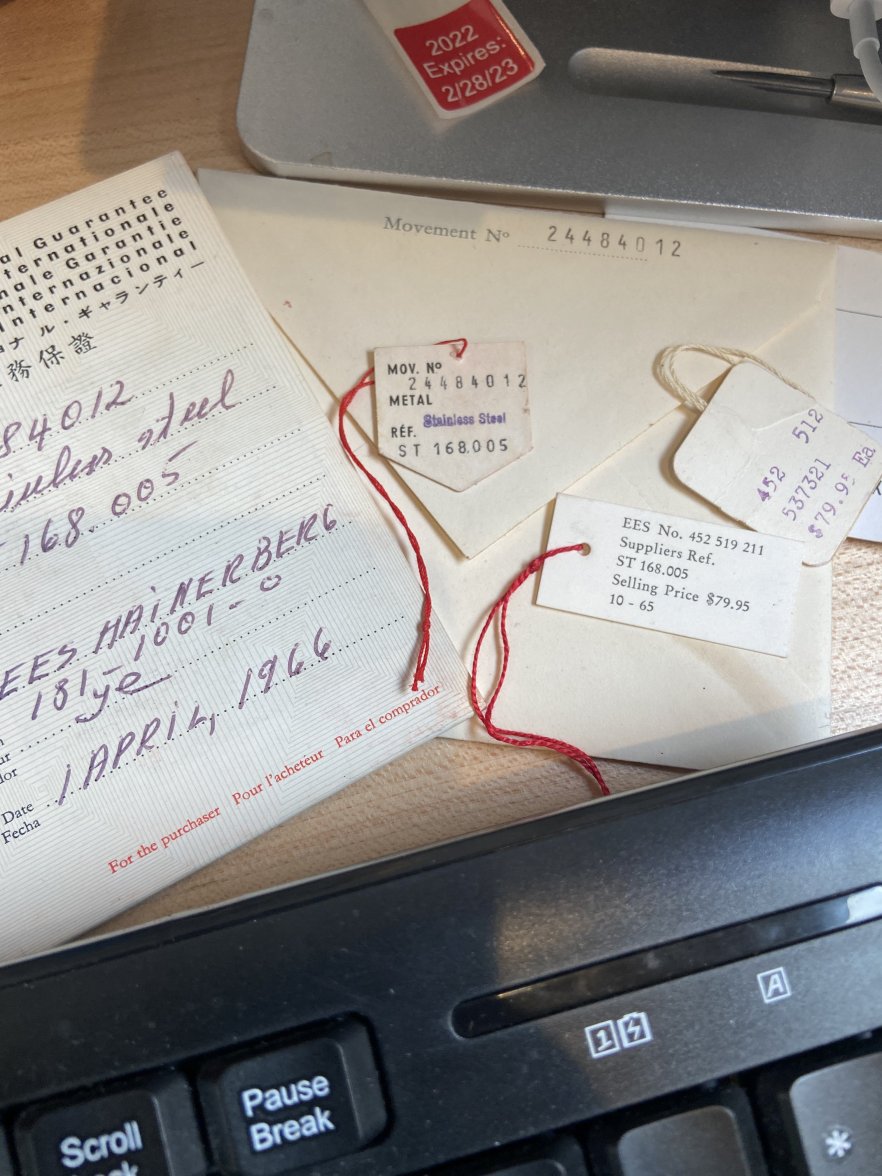 2022
Expires:
2/28/23
al Guarantee
nternationale
nale Garantie
Internazionale
Internacional
ョナル・ギャランティー
務保證
84012
stainless steel
168.005
EES HAINERBERG
181-1001-0
1 APRIL, 1966
Date
Fecha
For the purchaser Pour l'acheteur Para el comprador
Movement Nº 24484012
MOV. Nº
24484012
METAL
Stainless Steel
RÉF.
ST 168.005
452 512
537321
$79.95 Ea
EES No. 452 519 211
Suppliers Ref.
ST 168.005
Selling Price $79.95
10 - 65
1
A
Pause
Break
Scroll
*